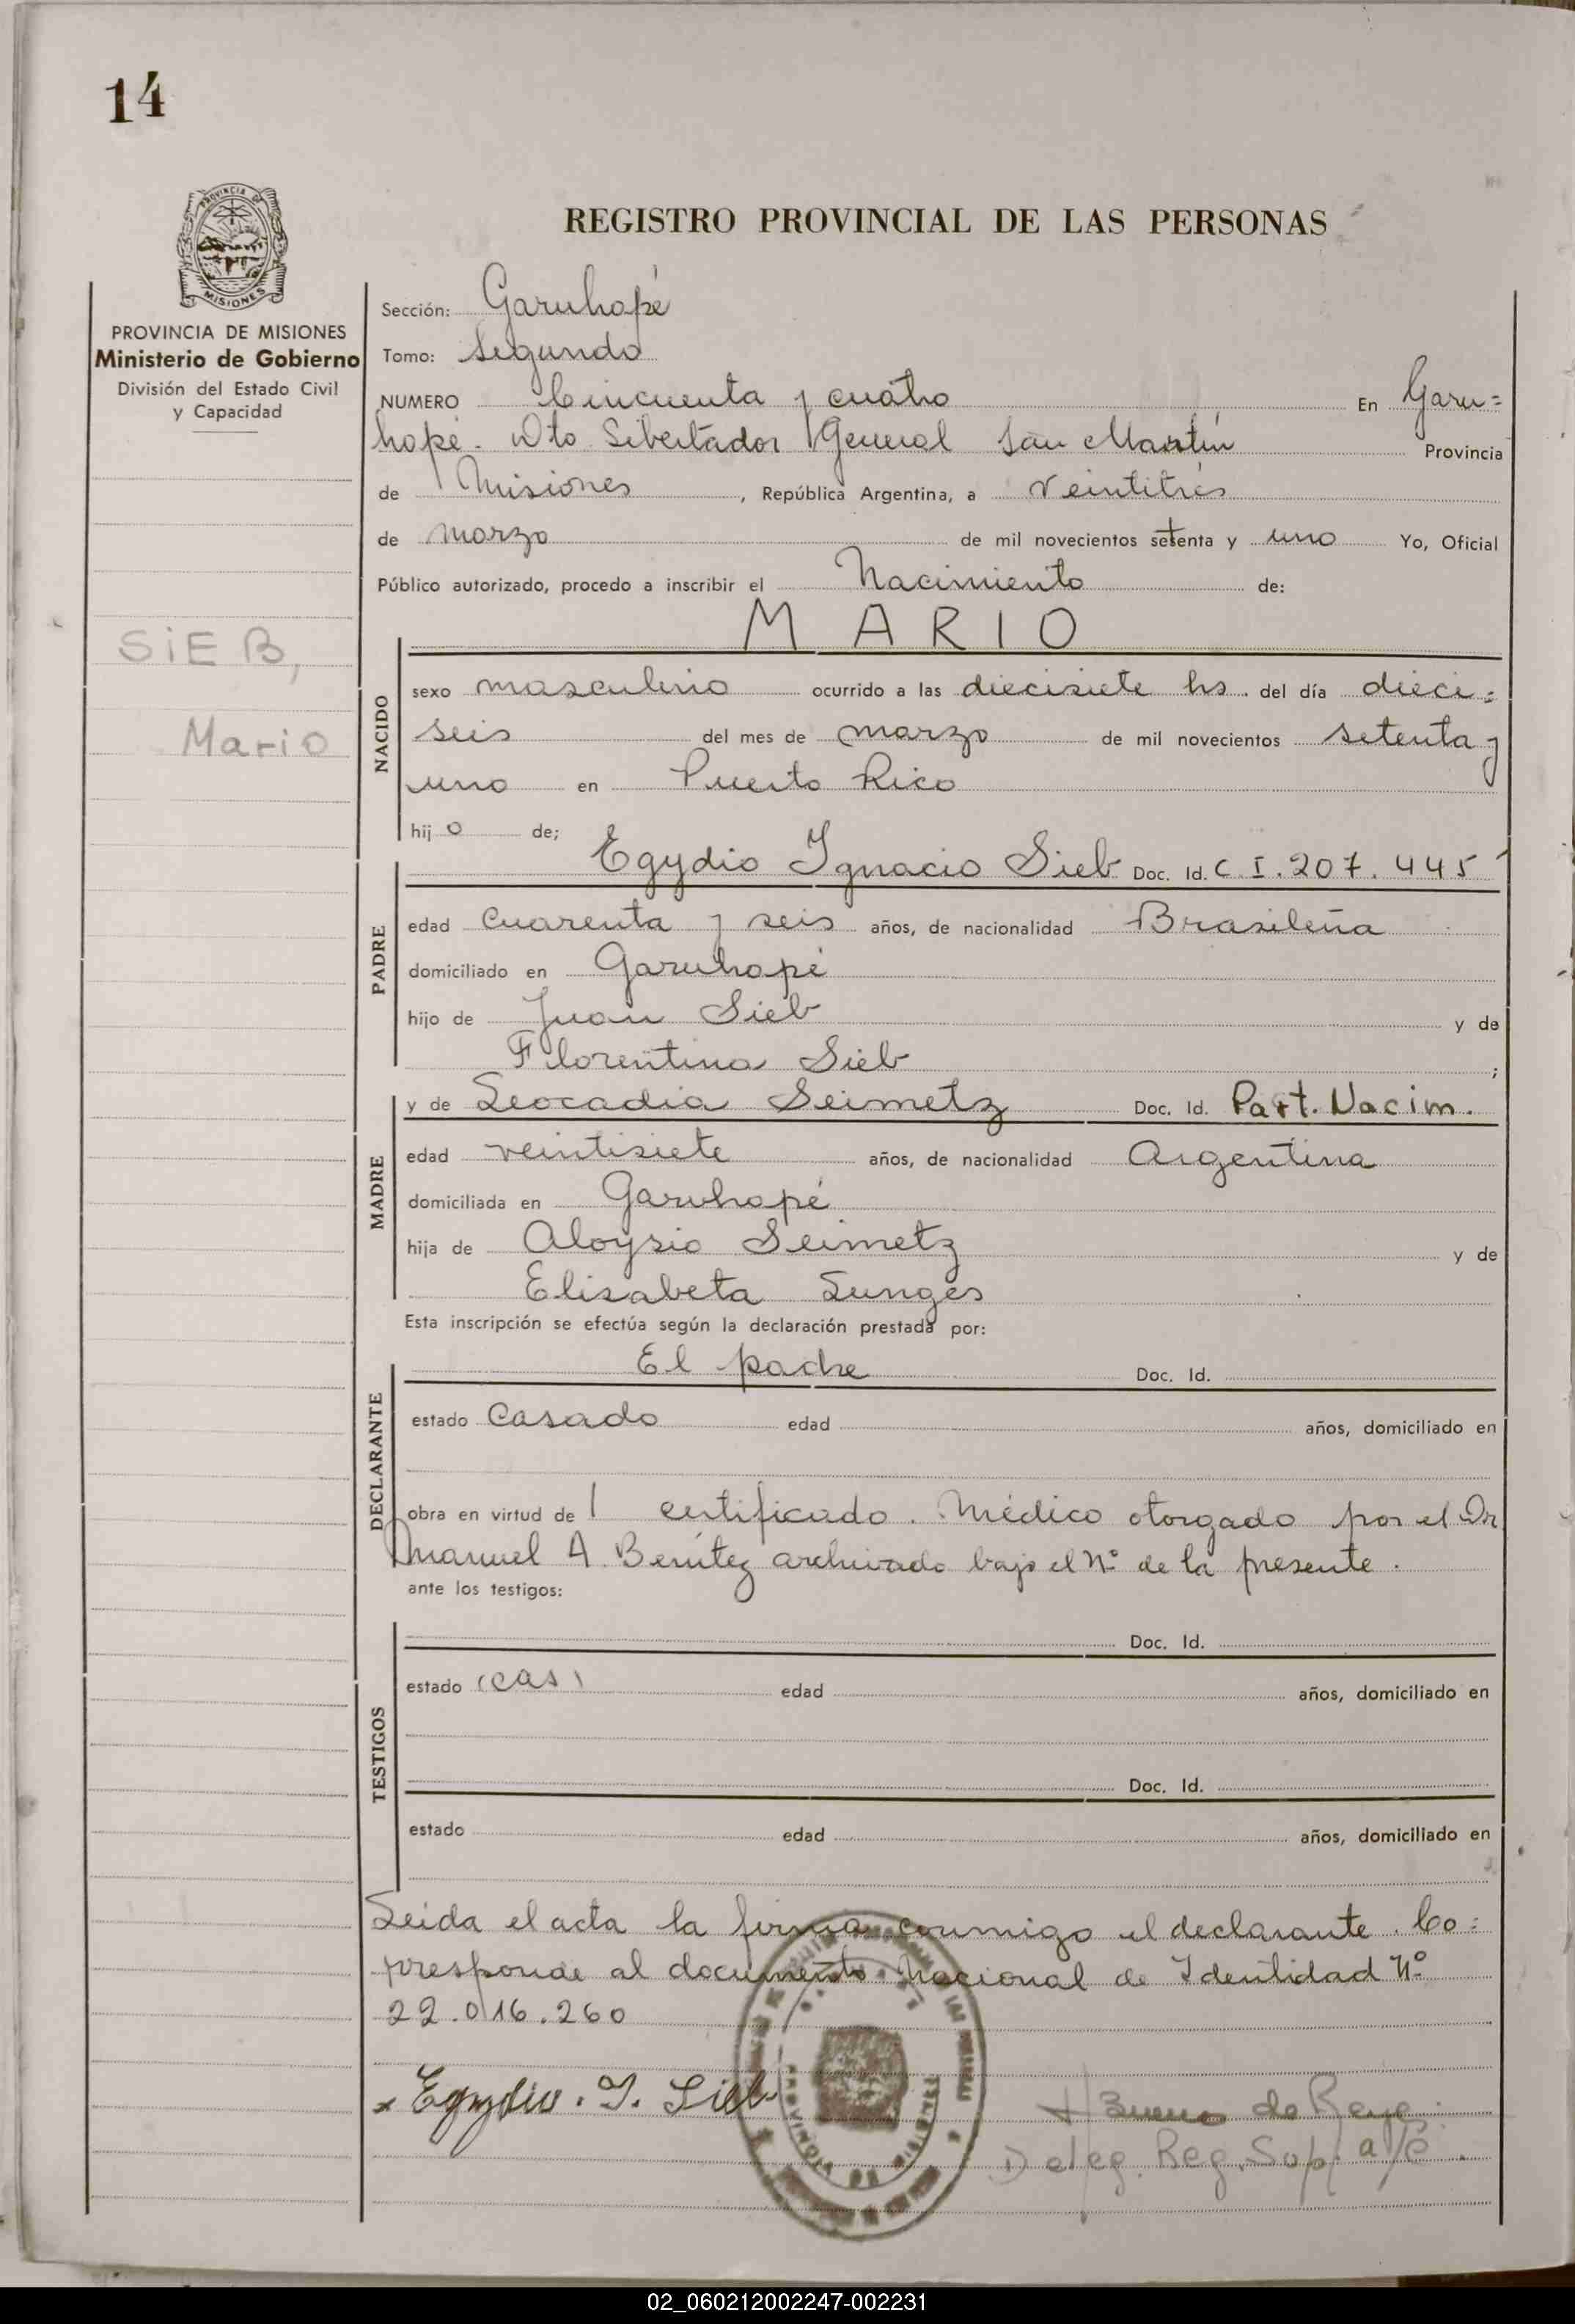 14
PROVINCIA DE
MISIONES
REGISTRO PROVINCIAL DE LAS PERSONAS
PROVINCIA DE MISIONES
Ministerio de Gobierno
División del Estado Civil
y Capacidad
SiEB,
Mario
Sección: Garuhapé
Tomo: Segundo
NUMERO Cincuenta y cuatro En Garu=
hapé. Dto Libertador General San Martín Provincia
de Misiones, República Argentina, a veintitrés
de marzo de mil novecientos setenta y uno Yo, Oficial
Público autorizado, procedo a inscribir el Nacimiento de:
MARIO
NACIDO
sexo masculino ocurrido a las diecisiete hs. del día dieci=
seis del mes de marzo de mil novecientos setenta y
uno en Puerto Rico
hijo de;
Egydio Ignacio Sieb Doc. Id. C.I. 207.445
PADRE
edad cuarenta y seis años, de nacionalidad Brasileña
domiciliado en Garuhapé
hijo de Juan Sieb y de
Florentina Sieb ;
y de Leocadia Seimetz Doc. Id. Part. Nacim.
MADRE
edad veintisiete años, de nacionalidad Argentina
domiciliada en Garuhapé
hija de Aloysio Seimetz y de
Elisabeta Lunges
Esta inscripción se efectúa según la declaración prestada por:
El padre Doc. Id.
DECLARANTE
estado Casado edad años, domiciliado en
obra en virtud de 1 certificado. Médico otorgado por el Dr
Manuel A. Benítez archivado bajo el Nº de la presente.
ante los testigos:
Doc. Id.
TESTIGOS
estado (cas) edad años, domiciliado en
Doc. Id.
estado edad años, domiciliado en
Leida el acta la firma conmigo el declarante. Co=
rresponde al documento Nacional de Identidad Nº
22.016.260
Egydio. I. Sieb
PROVINCIA DE MISIONES
H Bueno de Reyes
Deleg. Reg. Sup. a/c.
02_060212002247-002231